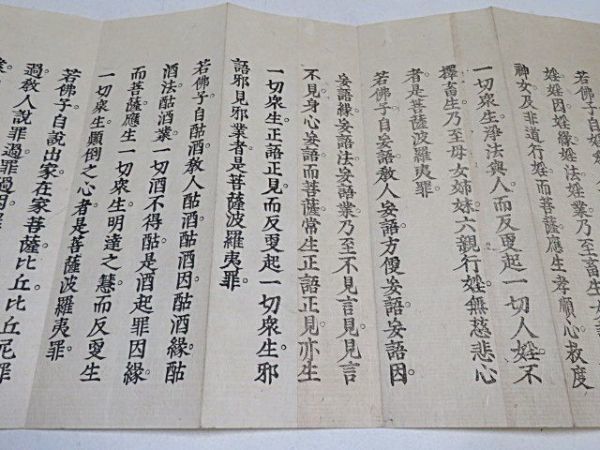 若佛子自婬教人
婬婬因婬緣婬法婬業乃至畜生女
神女及非道行婬而菩薩應生孝順心救度
一切衆生淨法與人而反更起一切人婬不
擇畜生乃至母女姊妹六親行婬無慈悲心
者是菩薩波羅夷罪
若佛子自妄語教人妄語方便妄語妄語因
妄語緣妄語法妄語業乃至不見言見見言
不見身心妄語而菩薩常生正語正見亦生
一切衆生正語正見而反更起一切衆生邪
語邪見邪業者是菩薩波羅夷罪
若佛子自酤酒教人酤酒酤酒因酤酒緣酤
酒法酤酒業一切酒不得酤是酒起罪因緣
而菩薩應生一切衆生明達之慧而反更生
一切衆生顚倒之心者是菩薩波羅夷罪
若佛子自說出家在家菩薩比丘比丘尼罪
過教人說罪過罪過因罪